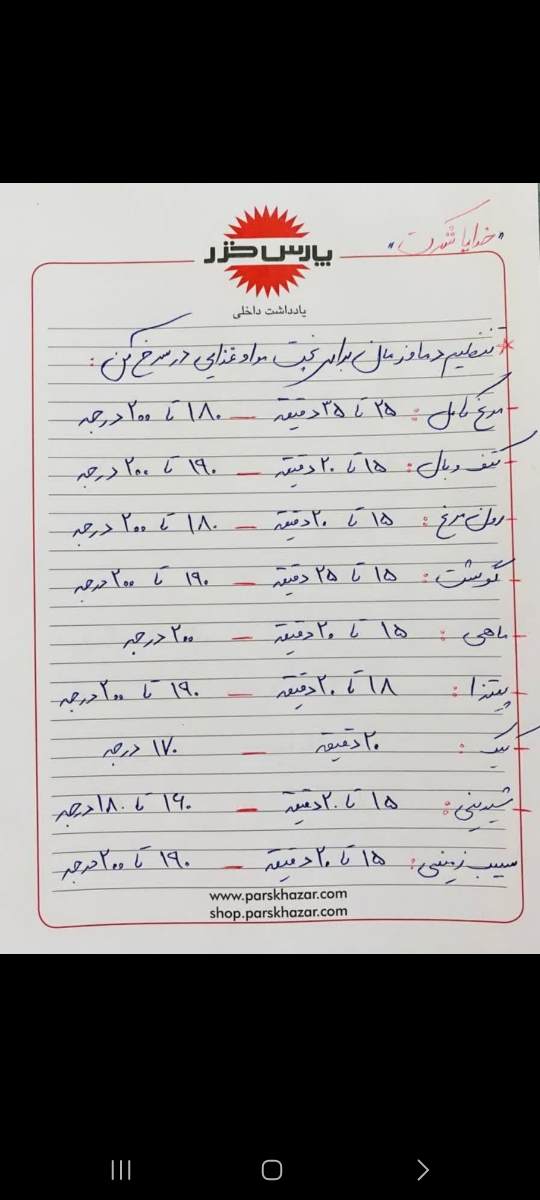 "خدایا شکرت"
پارس خزر
یادداشت داخلی
* تنظیم دما و زمان برای پخت مواد غذایی در سرخ کن :
- مرغ کامل : ۲۵ تا ۳۵ دقیقه — ۱۸۰ تا ۲۰۰ درجه
- کتف و بال : ۱۵ تا ۲۰ دقیقه — ۱۹۰ تا ۲۰۰ درجه
- رول مرغ : ۱۵ تا ۲۰ دقیقه — ۱۸۰ تا ۲۰۰ درجه
- گوشت : ۱۵ تا ۲۵ دقیقه — ۱۹۰ تا ۲۰۰ درجه
- ماهی : ۱۵ تا ۲۰ دقیقه — ۲۰۰ درجه
- پیتزا : ۱۸ تا ۲۰ دقیقه — ۱۹۰ تا ۲۰۰ درجه
- کیک : ۲۰ دقیقه — ۱۷۰ درجه
- شیرینی : ۱۵ تا ۲۰ دقیقه — ۱۶۰ تا ۱۸۰ درجه
سیب زمینی : ۱۵ تا ۲۰ دقیقه — ۱۹۰ تا ۲۰۰ درجه
www.parskhazar.com
shop.parskhazar.com